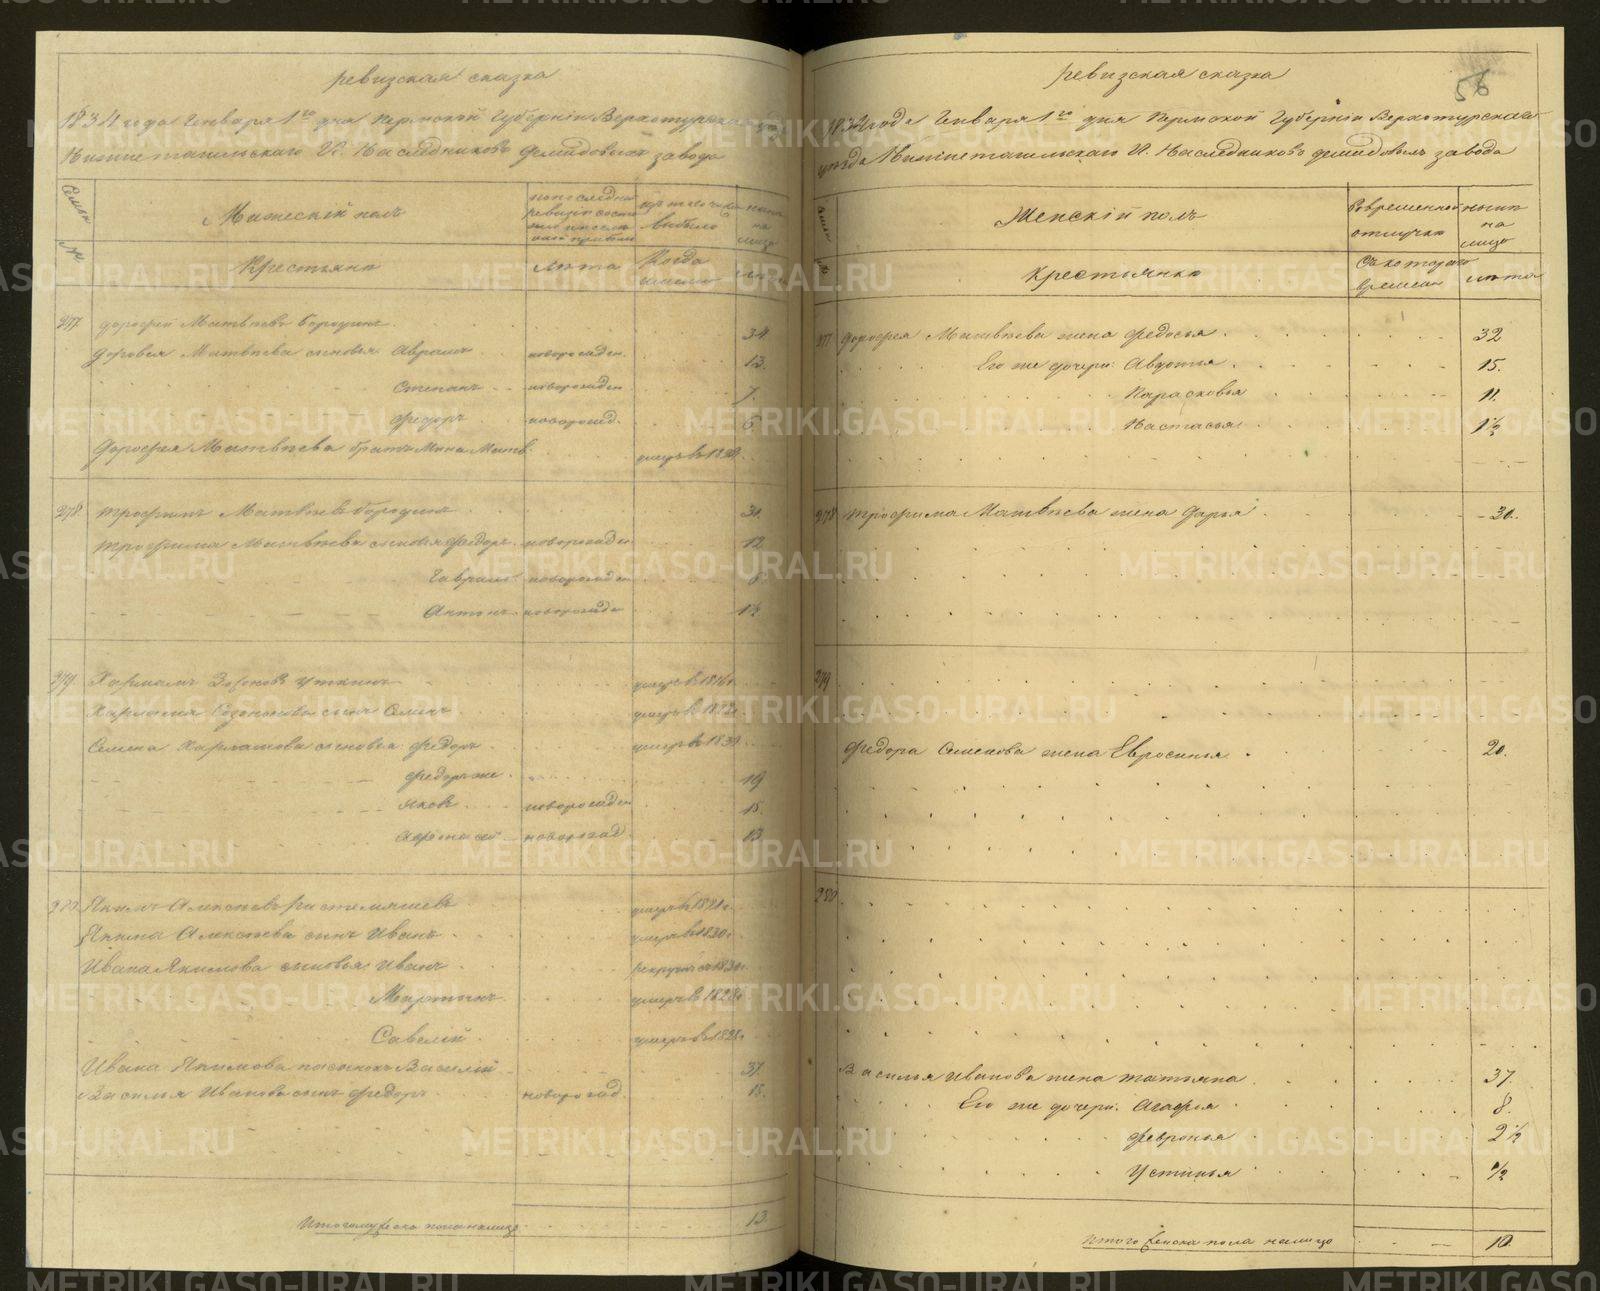 ревизская сказка
1834 года Генваря 1го дня Пермской Губернии Верхотурскаго
Нижнетагильскаго И. Наследников Демидовых завода
Семьи №
Мужеский пол
по последней ревизии состояло и после оной прибыло
из того числа выбыло
ныне на лицо
Крестьяне
Лета
Когда именно
лета
277 Дорофей Матвеев Бородин 34
Дорофея Матвеева сыновья Аврам новорожден. 13.
Степан новорожден 7.
Федор новорожд. 6
Дорофея Матвеева брат Мина Матв. умер в
278. Трофим Матвеев Бородин 31.
Трофима Матвеева сыновья Федор новорожден 12
Гаврил новорожден 8
Антон новорожден 1½
279. Харлам Уткин умер в 1816г.
Харлама Созонова сын Семен умер в
Семена Харламова сыновья Федор умер в
Федор же 19
Яков новорожден 15.
Афонасей новорожд. 13
280. Яким Алексеев умер в 1821г.
Якима Алексеева сын Иван умер в 1830г.
Ивана Якимова сыновья Иван рекрут с 1831г.
Мартын умер в 1828г
Савелий умер в 1828г
Ивана Якимова пасынок Василий 37.
Василья Иванова сын Федор новорожд. 15.
Итого мужеска пола на лицо 13
56
ревизская сказка
1834 года Генваря 1го дня Пермской Губернии Верхотурскаго
уезда Нижнетагильскаго И. Наследников Демидовых завода
Семьи №
Женский пол
Во временной отлучке
ныне на лицо
Крестьянки
Съ котораго времени
лета
277 Дорофея Матвеева жена Федосья 32
Его же дочери: Авдотья 15.
Парасковья 11.
Настасья 1½
278 Трофима Матвеева жена Дарья 30.
279
Федора Семенова жена Евросинья 20.
280.
Василья Иванова жена Татьяна 37.
Его же дочери: Агафья 8.
Февронья 2½
Устинья ½
Итого женска пола на лицо 10.
METRIKI.GASO-URAL.RU